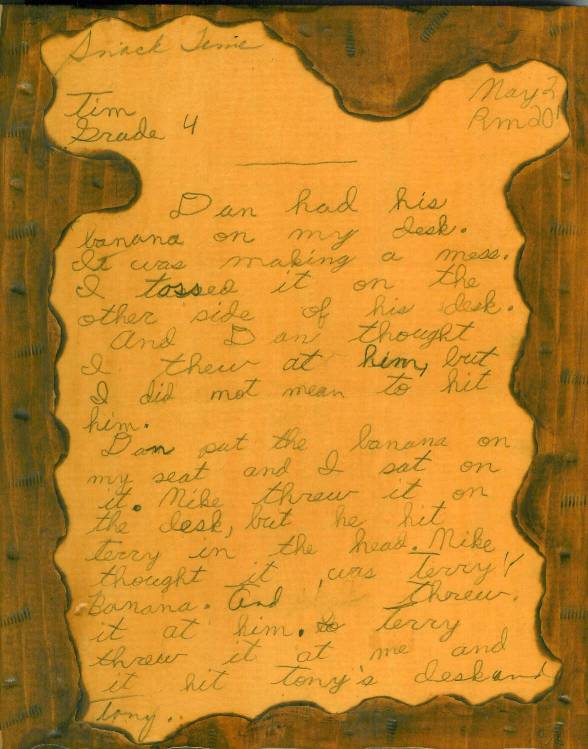 Snack Time
May 2
Tim
Rm 201
Grade 4
Dan had his
banana on my desk.
It was making a mess.
I tossed it on the
other side of his desk.
And Dan thought
I thew at him, but
I did not mean to hit
him.
Dan put the banana on
my seat and I sat on
it. Mike threw it on
the desk, but he hit
terry in the head. Mike
thought it was Terry'
Banana. And threw.
it at him. to terry
threw it at me and
it hit tony's desk and
Tony.